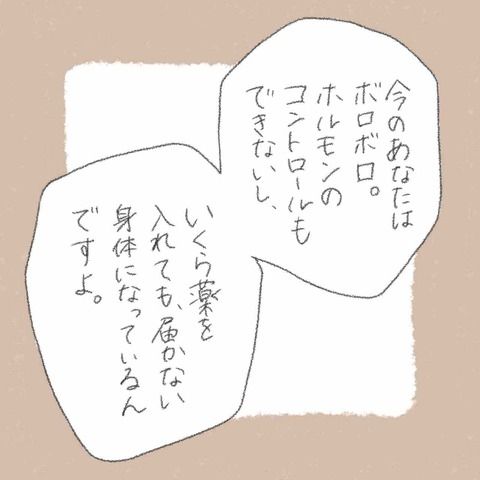 今のあなたは
ボロボロ。
ホルモンの
コントロールも
できないし、
いくら薬を
入れても、届かない
身体になっているん
ですよ。